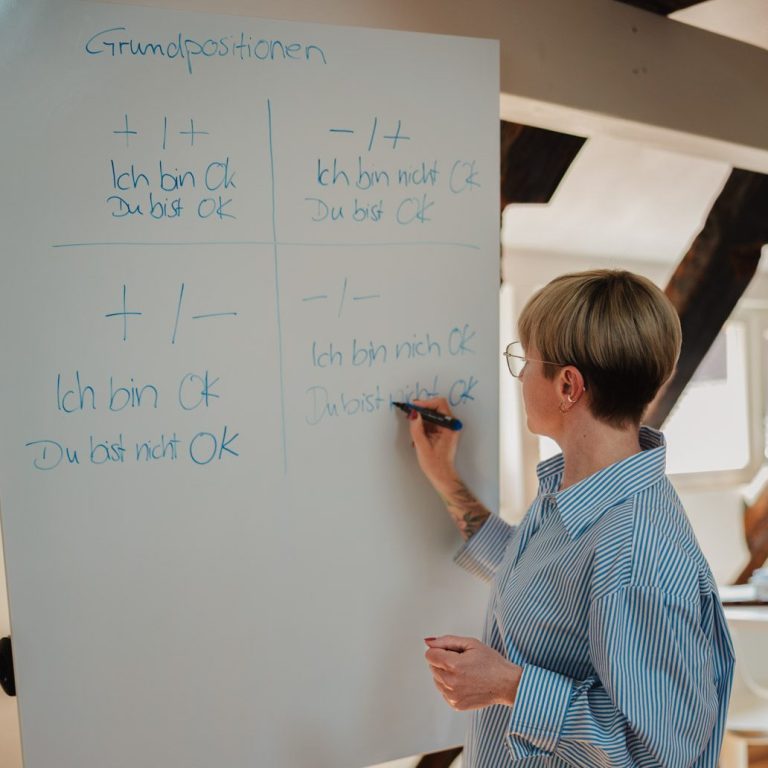 Grundpositionen
+ / +
Ich bin Ok
Du bist OK
- / +
Ich bin nicht Ok
Du bist OK
+ / -
Ich bin OK
Du bist nicht OK
- / -
Ich bin nich OK
Du bist nicht OK